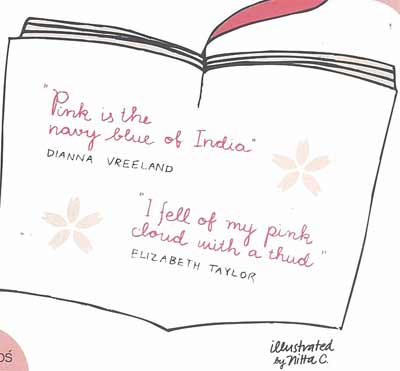 "Pink is the
navy blue of India"
DIANNA VREELAND
"I fell of my pink
cloud with a thud"
ELIZABETH TAYLOR
illustrated
by Nitta C.
oś